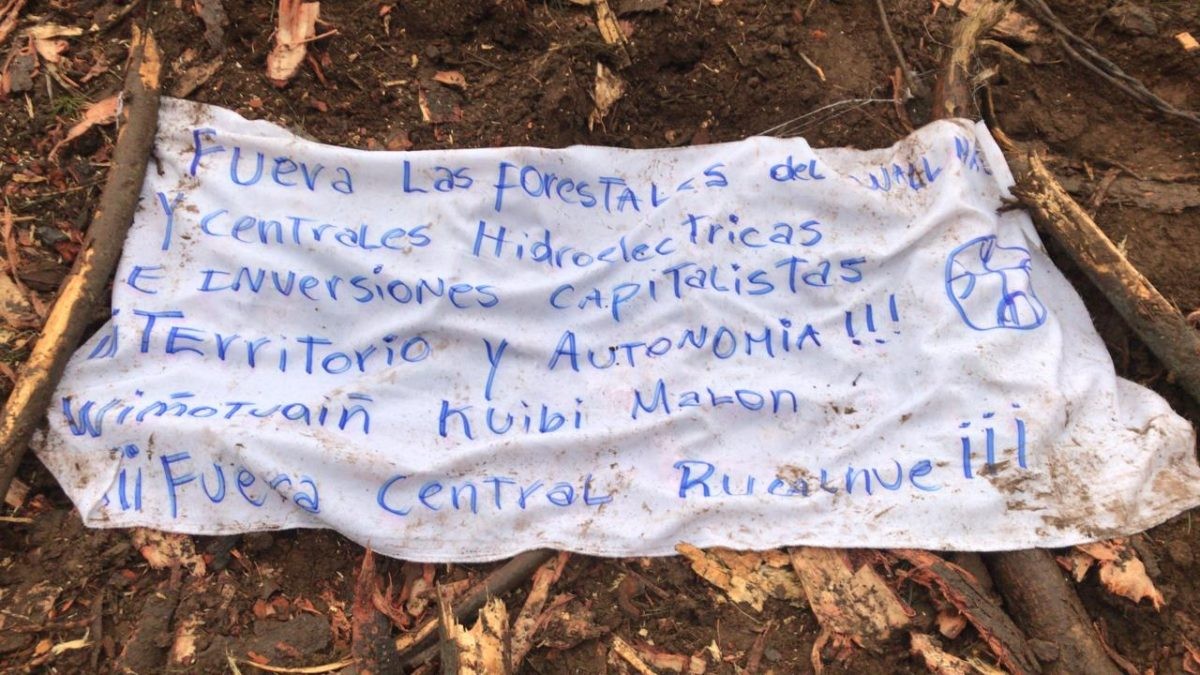 Fuera Las forestales del WALL MA
Y centrales Hidroelectricas
E INVersiones capitalistas
¡Territorio y AUTONOMIA!!!
Wiñotuaiñ Kuibi Malon
¡¡Fuera Central Rucalhue ¡¡¡